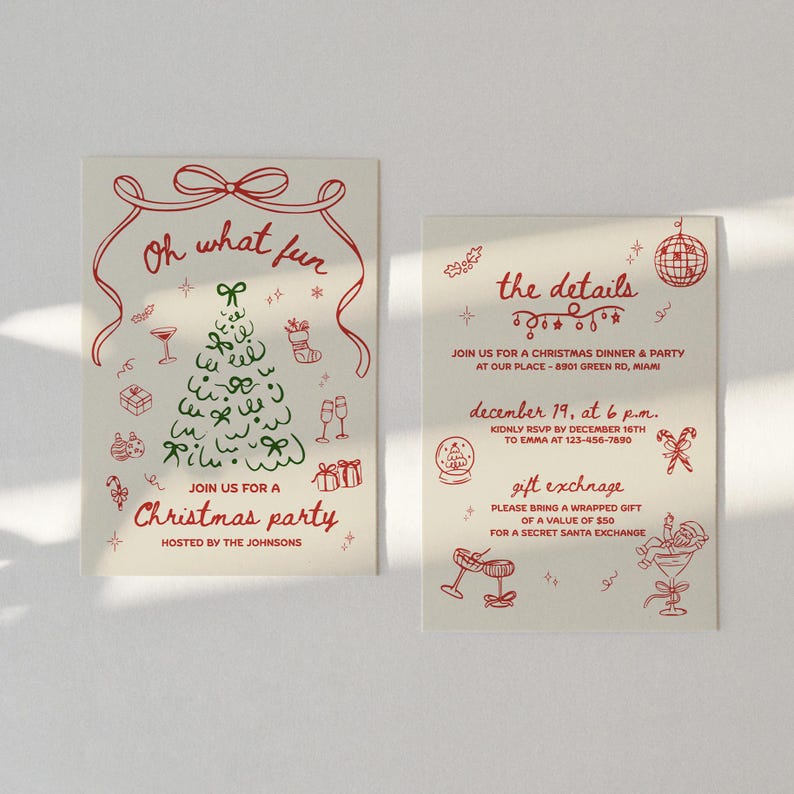 Oh what fun
JOIN US FOR A
Christmas party
HOSTED BY THE JOHNSONS
the details
JOIN US FOR A CHRISTMAS DINNER & PARTY
AT OUR PLACE - 8901 GREEN RD, MIAMI
december 19, at 6 p.m.
KIDNLY RSVP BY DECEMBER 16TH
TO EMMA AT 123-456-7890
gift exchnage
PLEASE BRING A WRAPPED GIFT
OF A VALUE OF $50
FOR A SECRET SANTA EXCHANGE